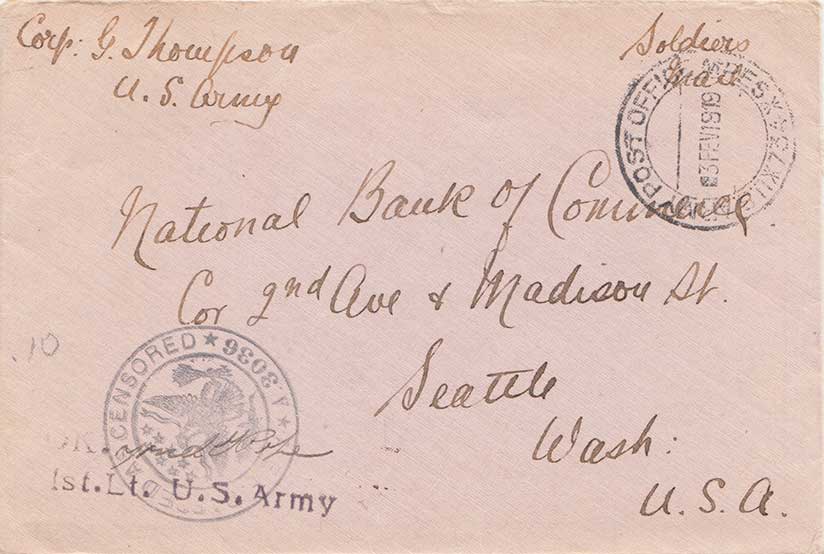 Corp. G. Thompson
U. S. Army
Soldiers
Mail
POST OFFICE
FEV 1919
National Bank of Commerce
Cor 2nd Ave & Madison St.
Seattle
Wash.
U. S. A.
.10
CENSORED ★ A 3036
OK.
1st. Lt. U.S. Army